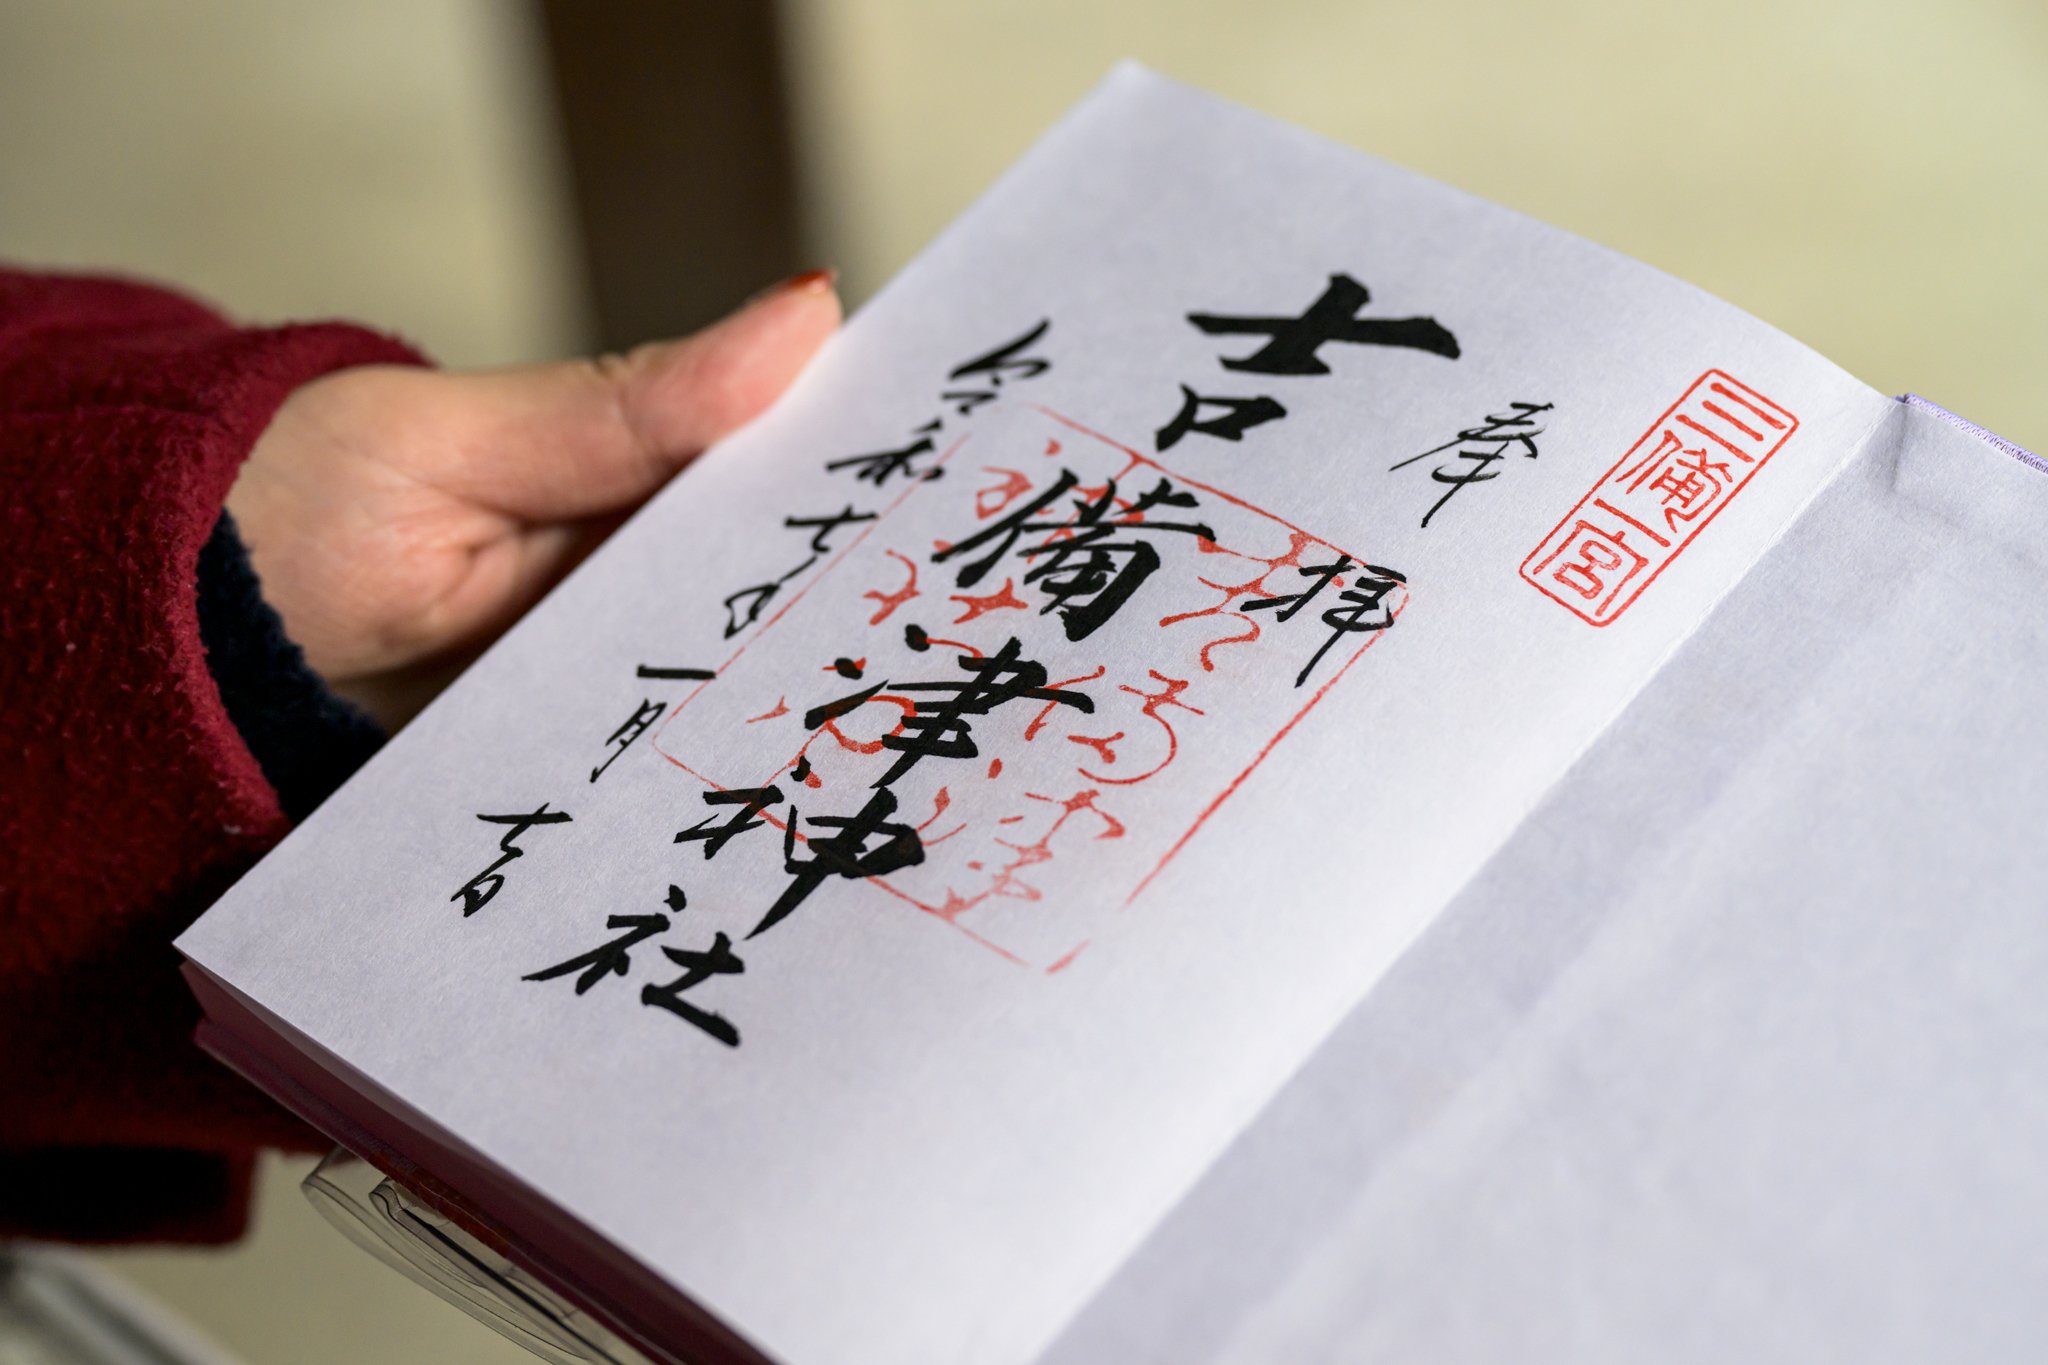 三備一宮
奉拝
吉備津神社
令和七年一月